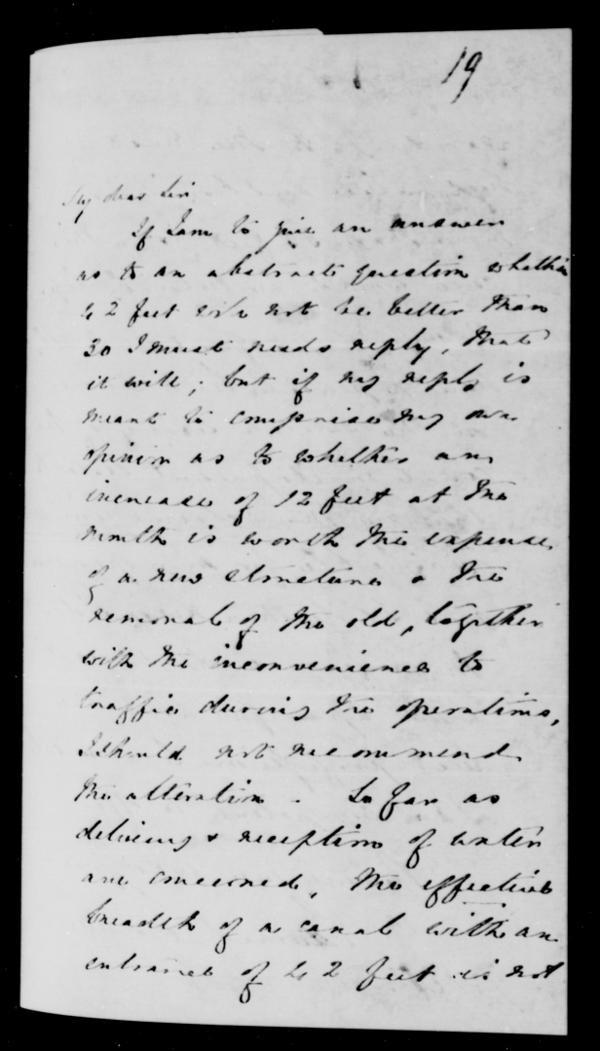 19
My dear Sir
If I am to give an answer
as to an abstract question whether
42 feet wd. not be better than
30 I must needs reply, that
it will; but if my reply is
meant to comprise my own
opinion as to whether an
increase of 12 feet at the
mouth is worth the expense
of a new structure & the
removal of the old, together
with the inconvenience to
traffic during the operations,
I should not recommend
the alteration. So far as
delivery & reception of water
are concerned, the effective
breadth of a canal with an
entrance of 42 feet is not